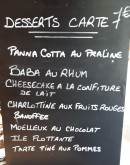 DESSERTS CARTE 7€
PANNA COTTA AU PRALINE
BABA AU RHUM
CHEESECAKE A LA CONFITURE
DE LAIT
CHARLOTTINE AUX FRUITS ROUGES
BANOFFEE
MOELLEUX AU CHOCOLAT
ILE FLOTTANTE
TARTE FINE AUX POMMES